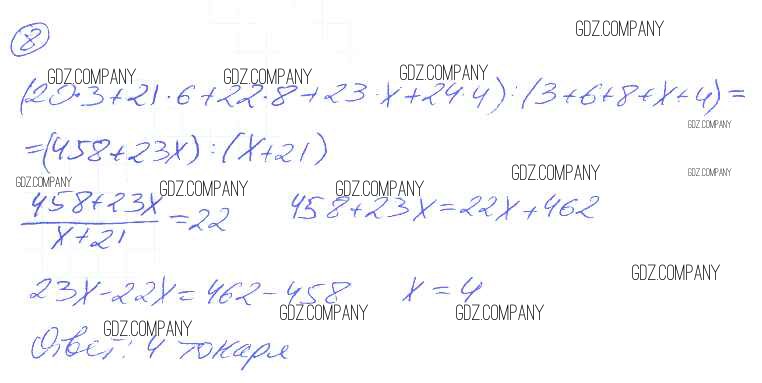 8
GDZ.COMPANY
GDZ.COMPANY GDZ.COMPANY GDZ.COMPANY
(20·3+21·6+22·8+23·x+24·4):(3+6+8+x+4)=
GDZ.COMPANY
=(458+23x):(x+21)
GDZ.COMPANY GDZ.COMPANY
GDZ.COMPANY GDZ.COMPANY GDZ.COMPANY
458+23x/x+21=22 458+23x=22x+462
GDZ.COMPANY
23x-22x=462-458 x=4
GDZ.COMPANY GDZ.COMPANY
GDZ.COMPANY
Ответ: 4 токаря